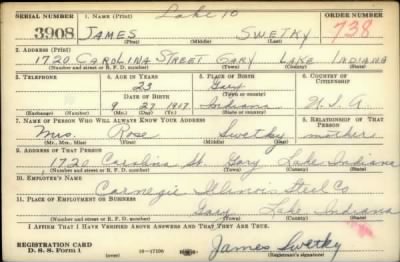 Lake 10
SERIAL NUMBER 1. NAME (Print) ORDER NUMBER
3908 JAMES SWETKY 738
(First) (Middle) (Last)
2. ADDRESS (Print)
1720 CAROLINA STREET GARY LAKE INDIANA
(Number and street or R. F. D. number) (Town) (County) (State)
3. TELEPHONE 4. AGE IN YEARS 5. PLACE OF BIRTH 6. COUNTRY OF CITIZENSHIP
23 Gary
DATE OF BIRTH (Town or county)
9 27 1917 Indiana U.S.A.
(Exchange) (Number) (Mo.) (Day) (Yr.) (State or country)
7. NAME OF PERSON WHO WILL ALWAYS KNOW YOUR ADDRESS 8. RELATIONSHIP OF THAT PERSON
Mrs. Rose Swetky mother
(Mr., Mrs., Miss) (First) (Middle) (Last)
9. ADDRESS OF THAT PERSON
1720 Carolina St. Gary Lake Indiana
(Number and street or R. F. D. number) (Town) (County) (State)
10. EMPLOYER'S NAME
Carnegie Illinois Steel Co
11. PLACE OF EMPLOYMENT OR BUSINESS
Gary Lake Indiana
(Number and street or R. F. D. number) (Town) (County) (State)
I AFFIRM THAT I HAVE VERIFIED ABOVE ANSWERS AND THAT THEY ARE TRUE.
REGISTRATION CARD
D. S. S. Form 1 16—17106 James Swetky
(Registrant's signature)